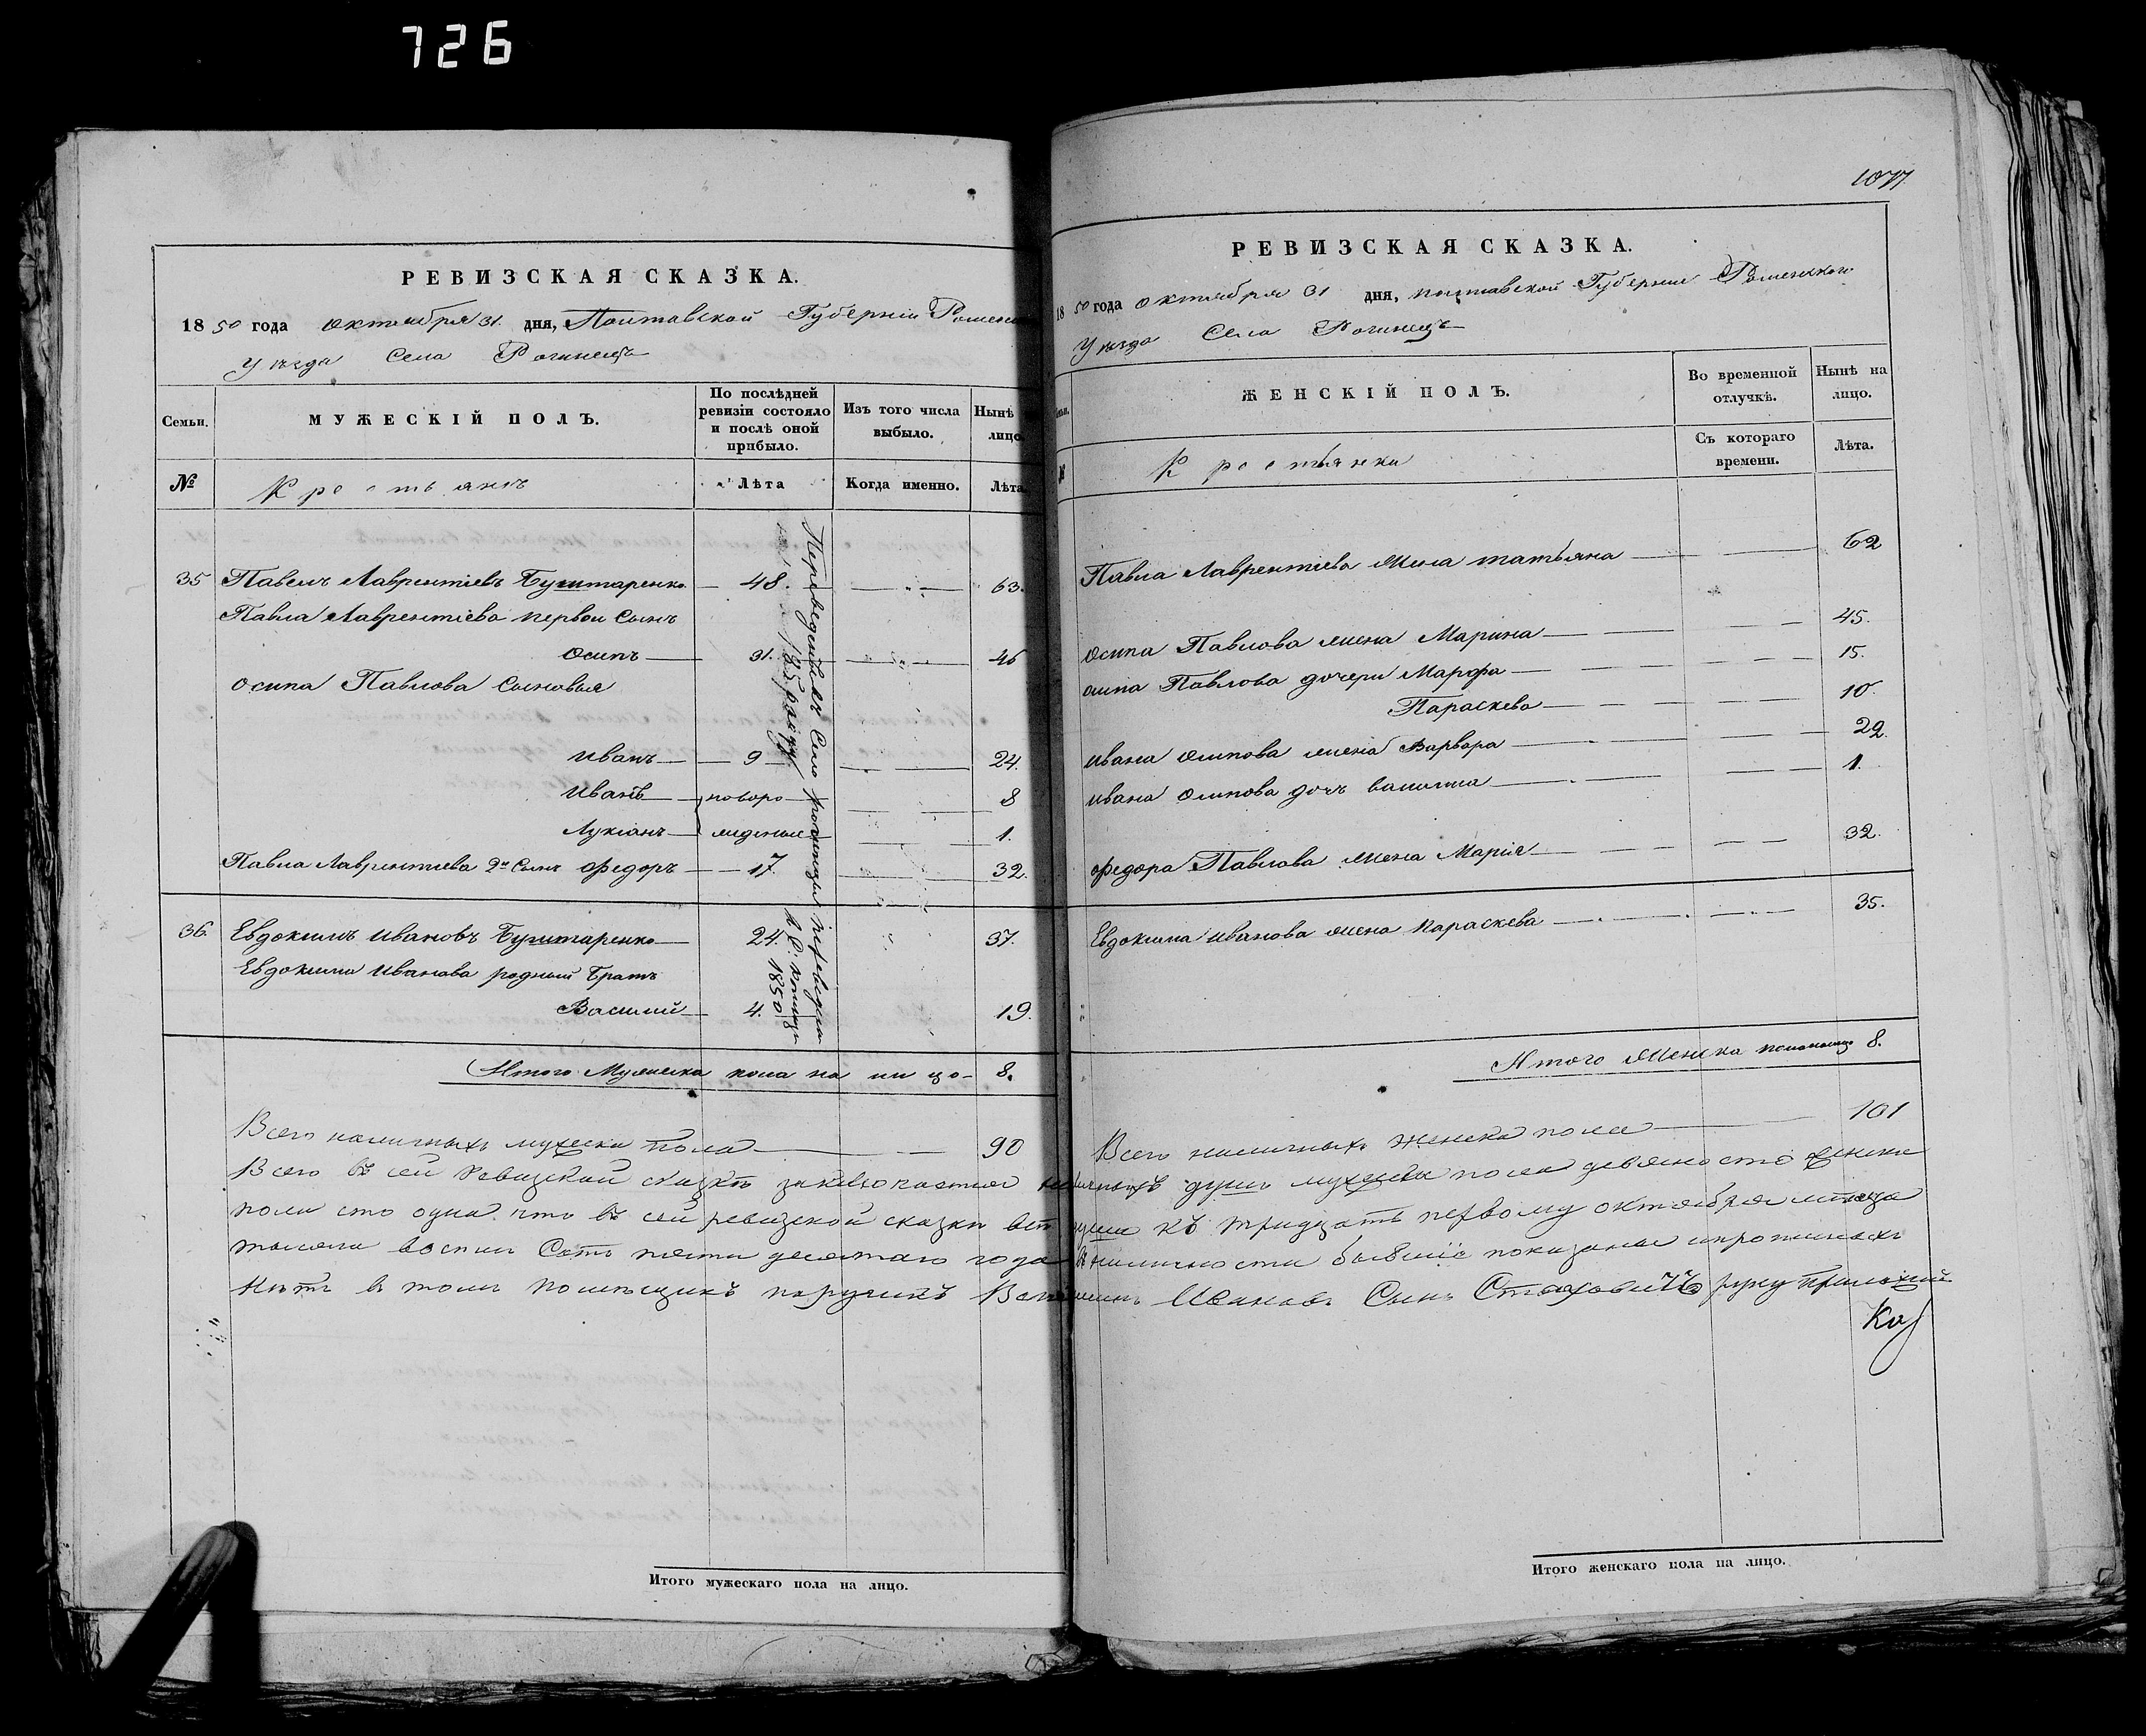 726
РЕВИЗСКАЯ СКАЗКА.
1850 года октября 31. дня, Полтавской Губерніи Роменс
Уезда Села Рогинець
Семьи.
МУЖЕСКІЙ ПОЛЪ.
По послѣдней ревизіи состояло и послѣ оной прибыло.
Изъ того числа выбыло.
Нынѣ лицо
№
Крестьянъ
Лѣта
Когда именно.
Лѣта
35 Павелъ Лаврентіевъ Буштаренко 48. 63.
Павла Лаврентіева первои Сынъ
Осипъ 31. 46
Осипа Павлова Сыновья
Иванъ 9 24.
Иванъ новоро 8
Лукіанъ жденые 1.
Павла Лаврентиева 2й Сынъ Федоръ 17 32.
36. Евдокимъ Ивановъ Буштаренко 24. 37.
Евдокима Иванова родный Братъ
Василий 4. 19.
1850
Итого Мужеска пола на лицо 8.
Всего наличныхъ мужеска пола 90
Итого мужескаго пола на лицо.
1077.
РЕВИЗСКАЯ СКАЗКА.
1850 года Октября 31 дня, полтавской Губернии Роменского
Уезда Села Рогинець
ЖЕНСКІЙ ПОЛЪ.
Во временной отлучкѣ.
Нынѣ на лицо.
№
Крестьянки
Съ котораго времени.
Лѣта.
Павла Лаврентіева жена татьяна 62
Осипа Павлова жена Марина 45.
осипа Павлова дочери Марфа 15.
Параскева 10.
Ивана Осипова жена Варвара 22.
Ивана Осипова дочь 1.
Федора Павлова жена Марія 32.
Евдокима Иванова жена Параскева 35.
Итого Женска пола налицо 8.
Всего наличныхъ женска пола 101
Всего въ сей Ревизской сказкѣ заключается наличныхъ душъ мужеска пола девяносто женска
пола сто одна что въ сей ревизской сказки всѣ души къ тридцать первому октября месяца
тысяча восемь Сотъ пятидесятаго года въ наличности бывшіе показаны и прописныхъ
Нѣтъ в томъ помѣщикъ поручикъ Ивановъ Сынъ Стаховичъ руку приложил